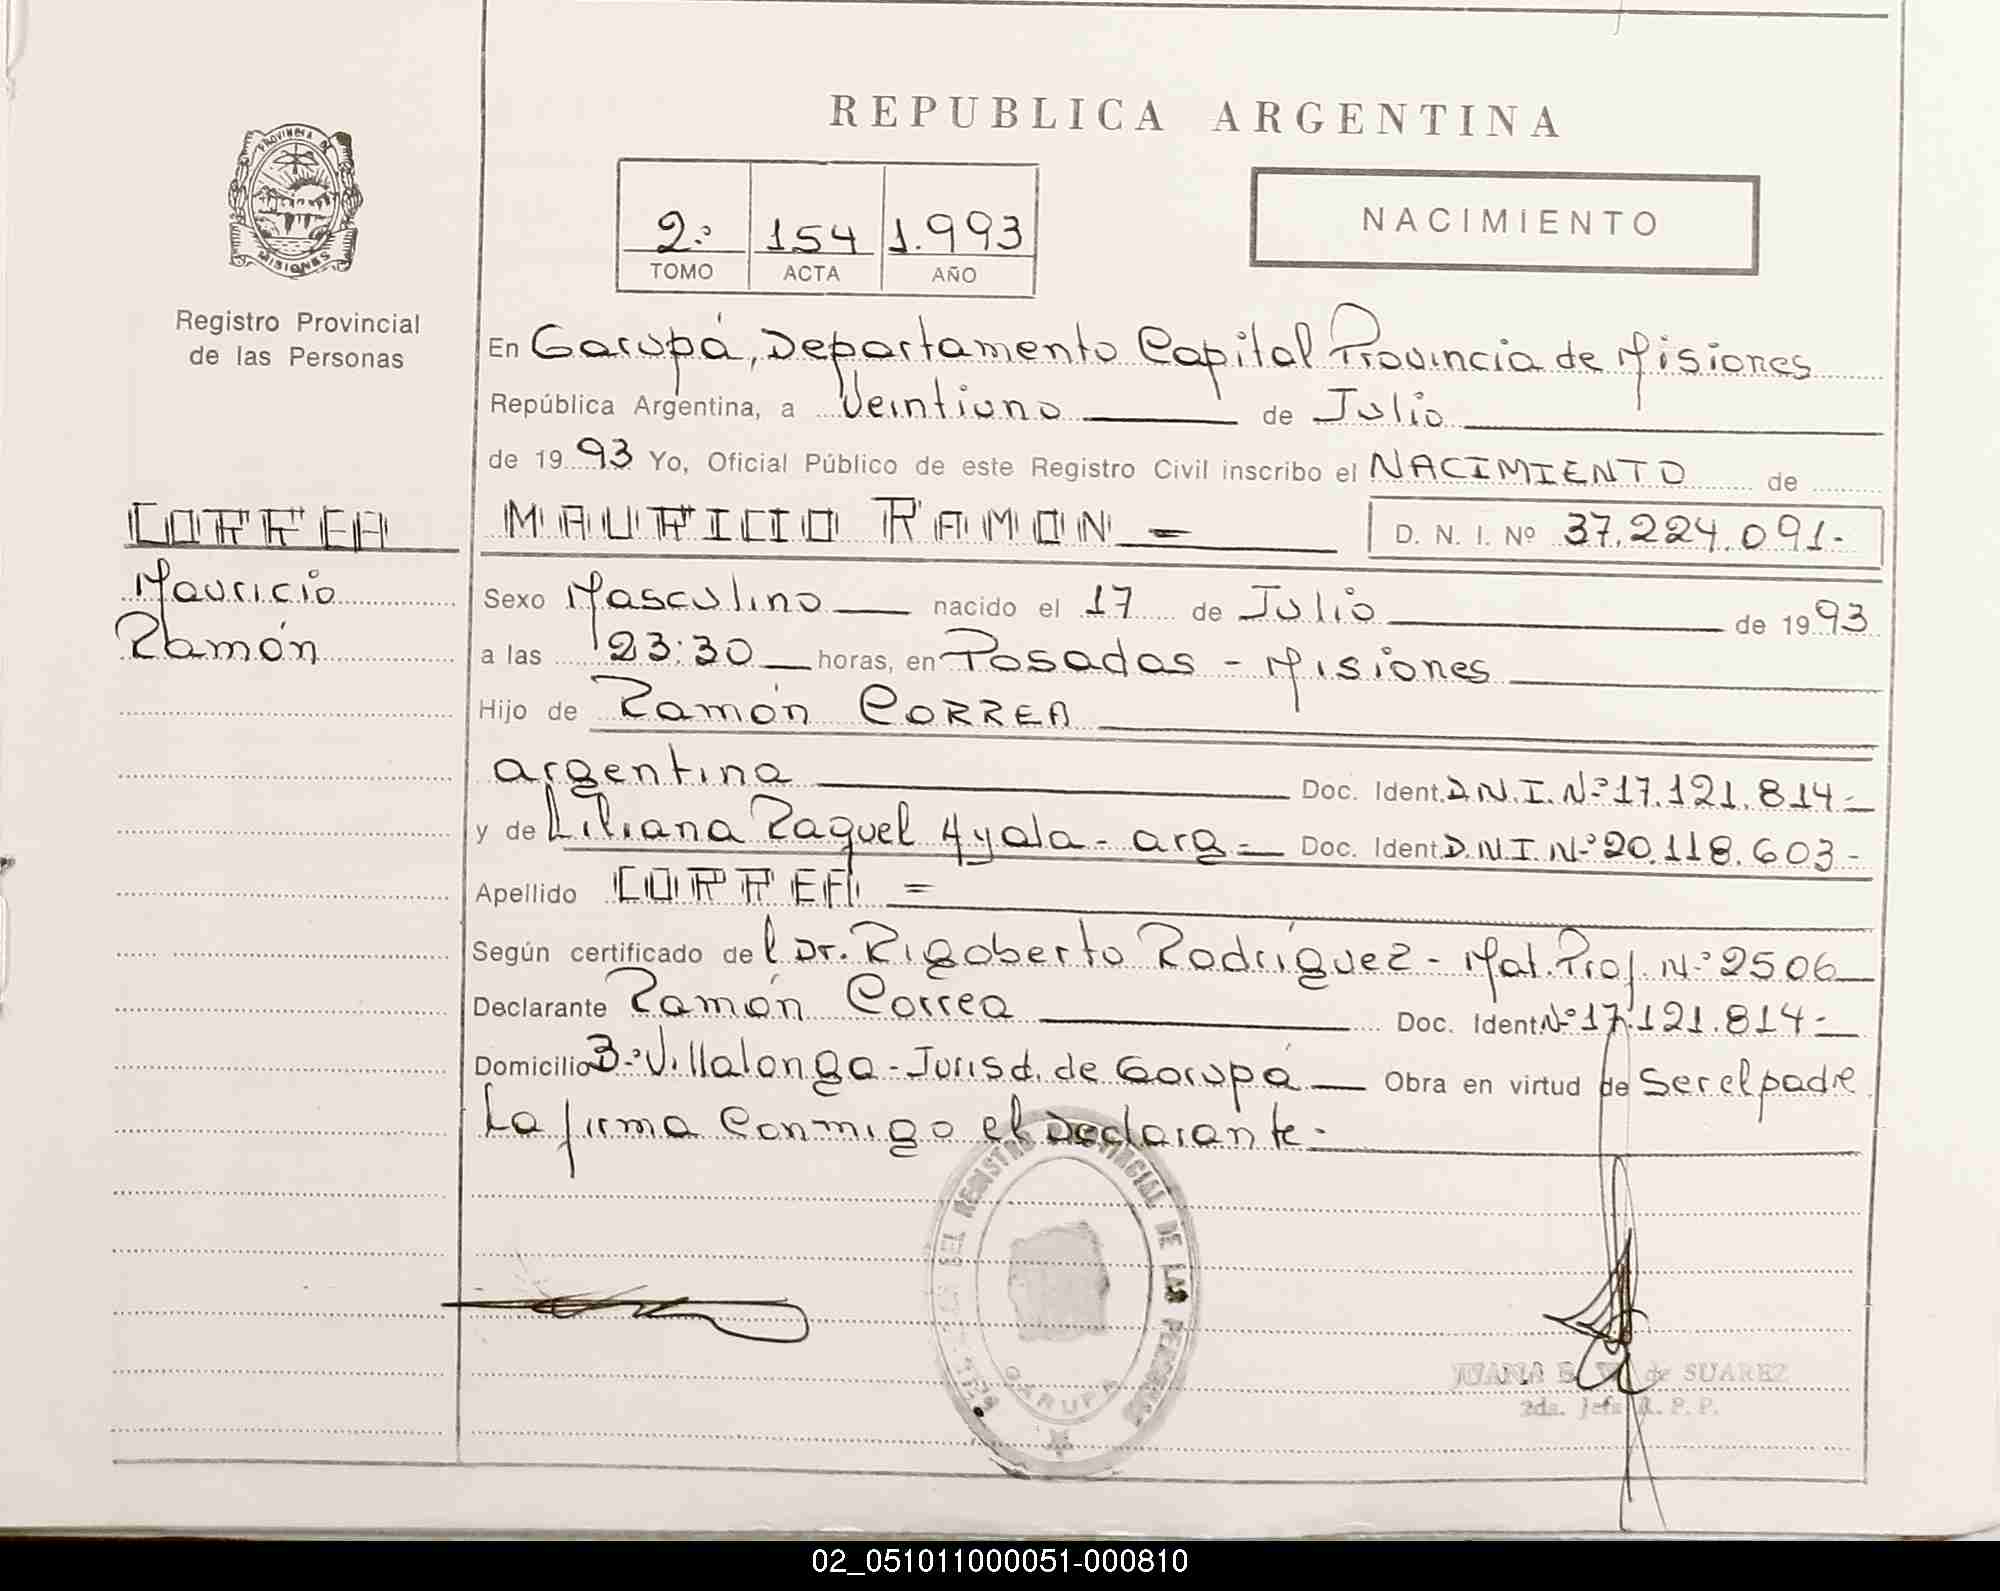 REPUBLICA ARGENTINA
PROVINCIA DE
MISIONES
Registro Provincial
de las Personas
2º 154 1.993
TOMO ACTA AÑO
NACIMIENTO
En Garupá, Departamento Capital Provincia de Misiones
República Argentina, a Veintiuno de Julio
de 1993 Yo, Oficial Público de este Registro Civil inscribo el NACIMIENTO de
CORREA
Mauricio
Ramón
MAURICIO RAMON =
D. N. I. Nº 37.224.091-
Sexo Masculino nacido el 17 de Julio de 1993
a las 23:30 horas, en Posadas - Misiones
Hijo de Ramón CORREA
argentina Doc. Ident. D.N.I. Nº 17.121.814-
y de Liliana Raquel Ayala - arg = Doc. Ident D.N.I. Nº 20.118.603-
Apellido CORREA =
Según certificado de l Dr. Rigoberto Rodríguez - Mat. Prof. Nº 2506
Declarante Ramón Correa Doc. Ident Nº 17.121.814-
Domicilio Bº Villalonga - Jurisd. de Garupá Obra en virtud de Ser el padre
La firma Conmigo el Declarante-
DEL REGISTRO PROVINCIAL DE LAS PERSONAS
GARUPA
JUANA de SUAREZ
2da. Jefa R. P. P.
02_051011000051-000810